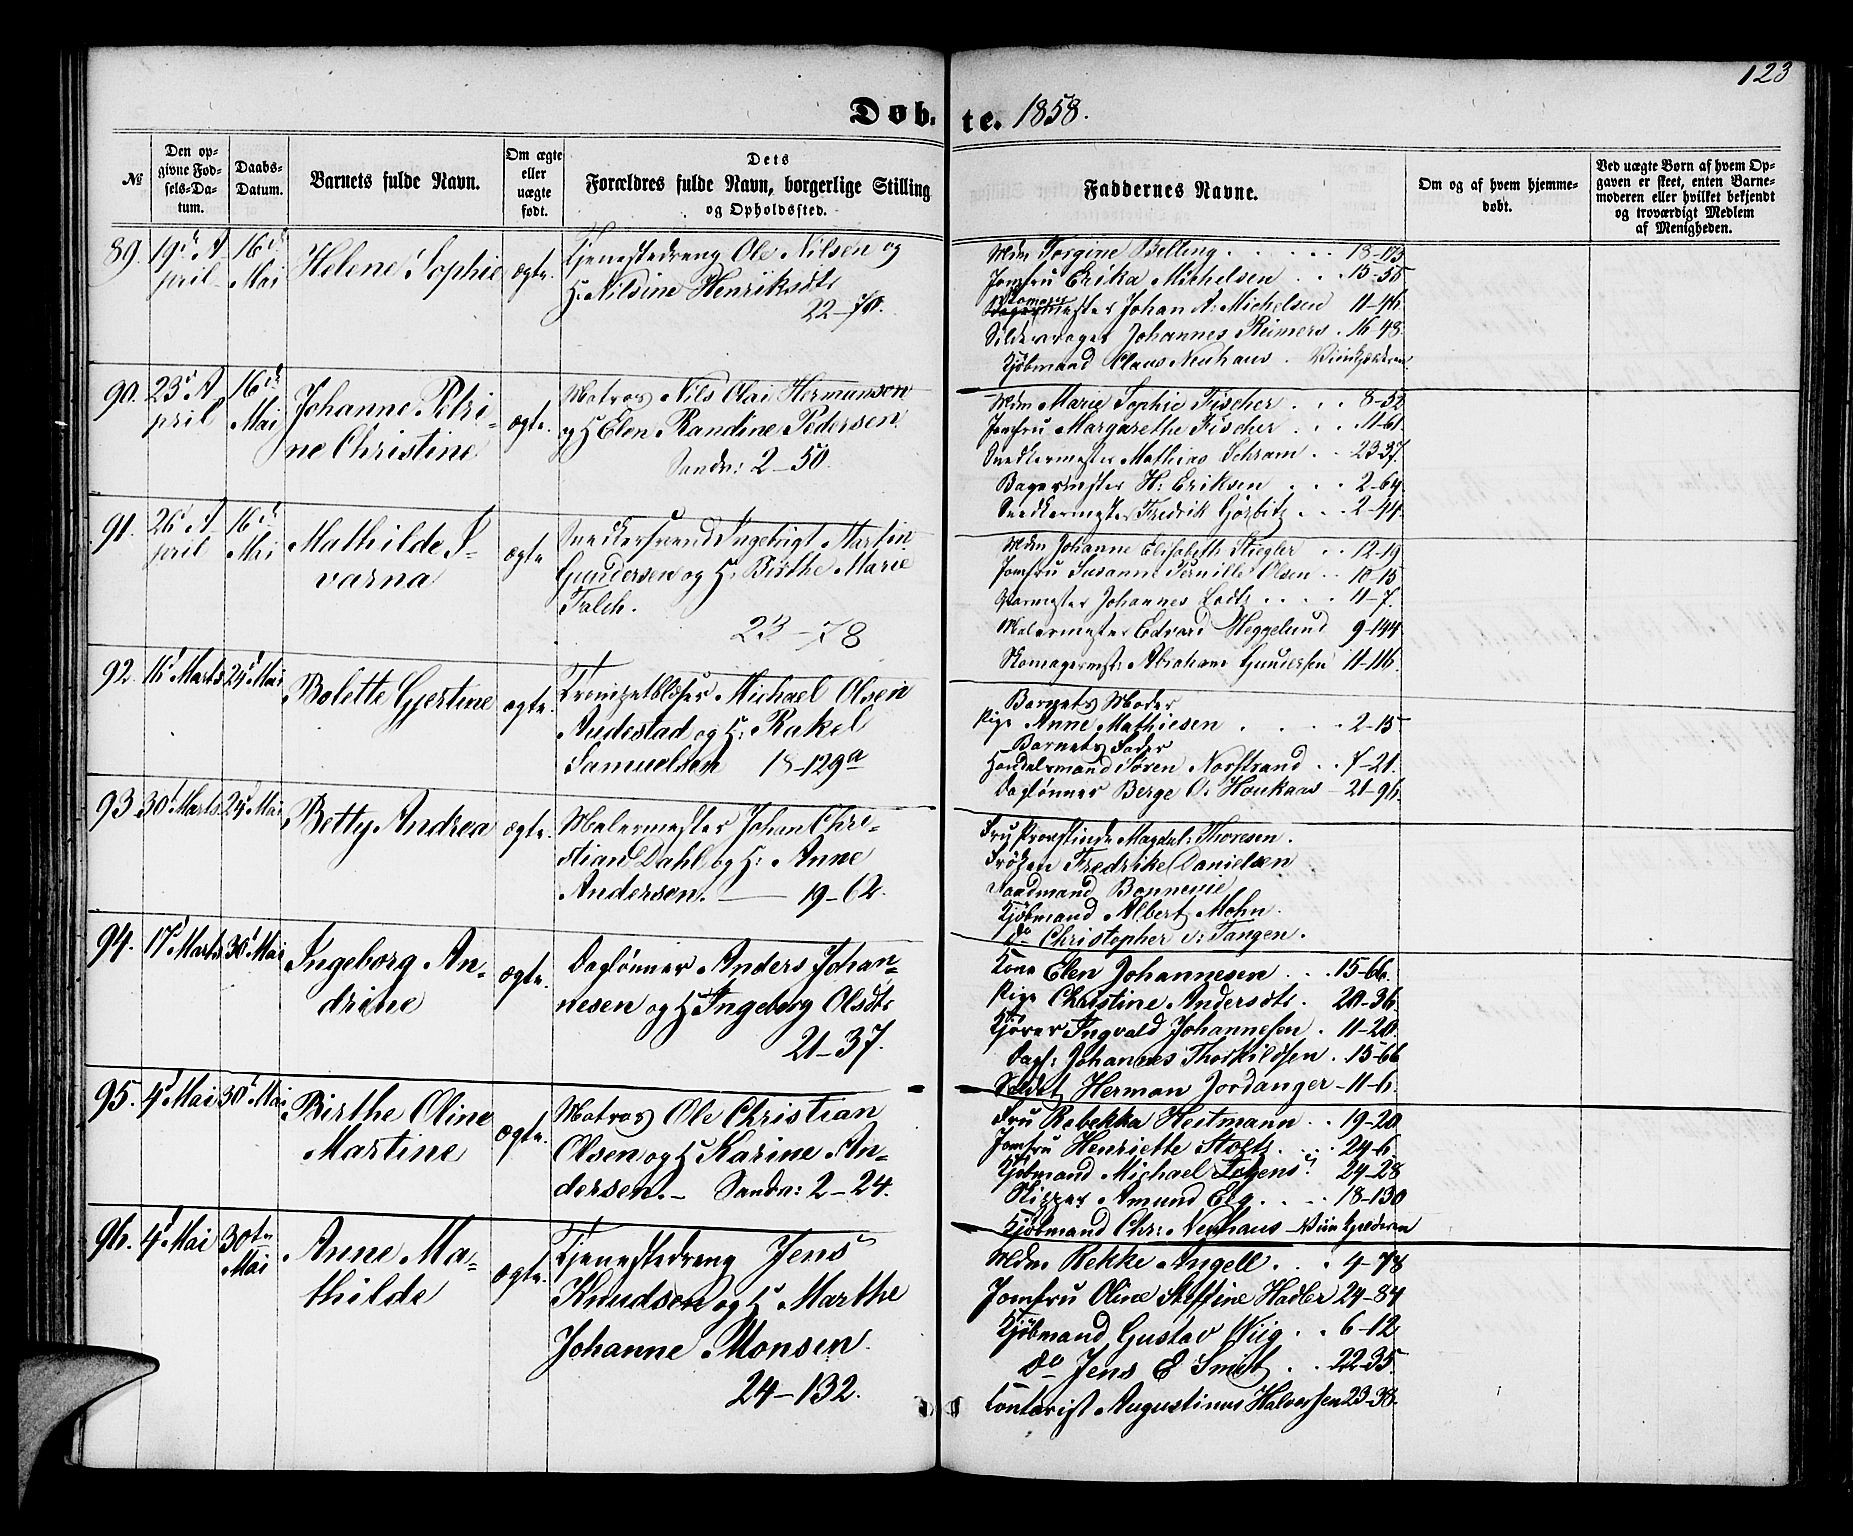 123
Døb-te. 1858.
№
Den op-
givne Fød-
sels-Da-
tum.
Daabs-
Datum.
Barnets fulde Navn.
Om ægte
eller
uægte
født.
Dets
Forældres fulde Navn, borgerlige Stilling
og Opholdssted.
Faddernes Navne.
Om og af hvem hjemme-
døbt.
Ved uægte Børn af hvem Op-
gaven er skeet, enten Barne-
moderen eller hvilket bekjendt
og troværdigt Medlem
af Menigheden.
89. 19de A
pril
16de
Mai
Helene Sophie
ægte.
Tjenestedreng Ole Nilsen og
H. Nilsine Henriksdtr
22-70.
Mdm Torgine Belling 18-173
Jomfru Erika Michelsen 15-55
Skomagermester Johan A: Michelsen 11-46
Sildevrager Johannes Reimers 16-48
Kjøbmand Claus Neuhaus Viinkjælderen
90. 23de A
pril
16de
Mai
Johanne Petri-
ne Christine
ægte.
Matros Nils Olai Hermansen
og H Elen Randine Pedersen
Sandv: 2-50.
Mdm Marie Sophie Fischer 8-52
Jomfru Margarethe Fischer 11-61
Snedkermester Mathias Schram 23-37.
Bagermester H: Eriksen 2-64
Snedkermester Fredrik Gørbitz 2-44
91. 26de A
pril
16de
Mai
Mathilde I-
varna
ægte
Snedkersvend Ingebrigt Martin
Gundersen og H. Birthe Marie
Falch.
23-78
Mdm Johanne Elisabeth Stiegler 12-19
Jomfru Susanne Pernille Olsen 10-15
Garvmester Johannes Lodtz 11-7.
Malermester Edvard Heggelund 9-144
Skomagermstr Abraham Gundersen 11-116.
92. 16d Marts 24d Mai
Bolette Gjertine
ægte.
Trompetblæser Michael Olsen
Audestad og H: Rakel
Samuelsen 18-129a
Barnets Moder
Pige Anne Mathiesen 2-15
Barnets Fader
Handelsmand Søren Norstrand 7-21.
Daglønner Berge O: Haukaas 21-96.
93. 30d Marts 24d Mai
Betty Andrea
ægte.
Malermester Johan Chri-
stian Dahl og H: Anne
Andersen. 19-62.
Fru Provstinde Magdal: Thoresen.
Frøken Fredrikke Danielsen
Raadmand Bonnevie
Kjøbmand Albert Mohn.
do Christopher v: Tangen.
94. 17d Marts 30d Mai
Ingeborg An-
drine
ægte.
Daglønner Anders Johan-
nesen og H Ingeborg Olsdtr
21-37.
Kone Elen Johannesen 15-66.
Pige Christine Andersdtr. 20-36.
Kjører Ingvald Johannesen 11-20
Dagl: Johannes Thorkildsen 15-66
Soldat Herman Jordanger 11-6.
95. 4d Mai 30d Mai
Birthe Oline
Martine
ægte.
Matros Ole Christian
Olsen og H Karine An-
dersen. Sandv: 2-24.
Fru Rebekka Heitmann 19-20
Jomfru Henriette Stoltz 24-6.
Kjøbmand Michael Jebens 24-28
Skipper Amund Elg 18-130
Kjøbmand Chr: Neuhaus Viinkjælderen
96. 4d Mai 30te
Mai
Anne Ma-
thilde
ægte.
Tjenestedreng Jens
Knudsen og H Marthe
Johanne Monsen.
24-132.
Mdm. Rekke Angell 4-78
Jomfru Oline Steffine Hadler 24-84
Kjøbmand Gustav Wiig 6-12
do Jens E Smit 22-35.
Contorist Augustinus Halvorsen 23-38.